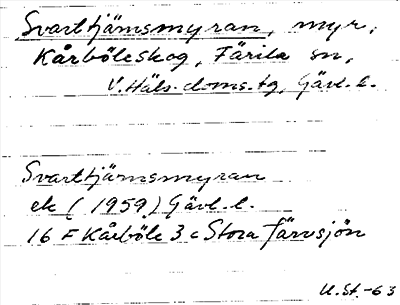 Svarttjämsmyran, myr,
Kårböleskog, Färila sn,
V. Häls. doms.tg, Gävl. l.
Svarttjämsmyran
ek (1959) Gävl. l.
16 F Kårböle 3 c Stora Tärnsjön
U. St. -63